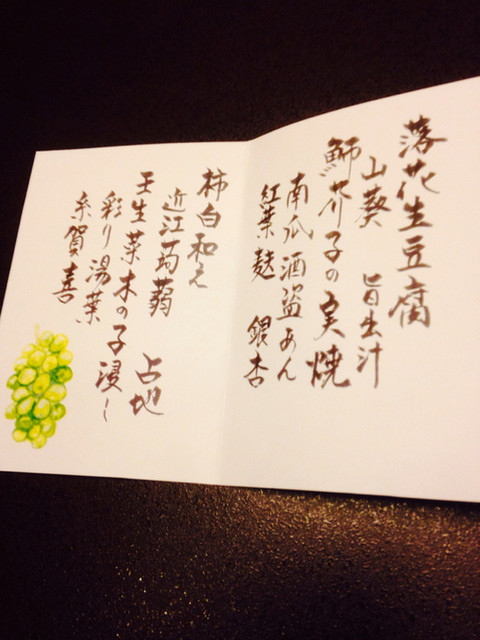 落花生豆腐
山葵 旨出汁
鰤芥子の実焼
南瓜酒盗あん
紅葉麩 銀杏
柿白和え
近江蒟蒻
壬生菜木の子浸し 占地
彩り湯葉
糸賀喜